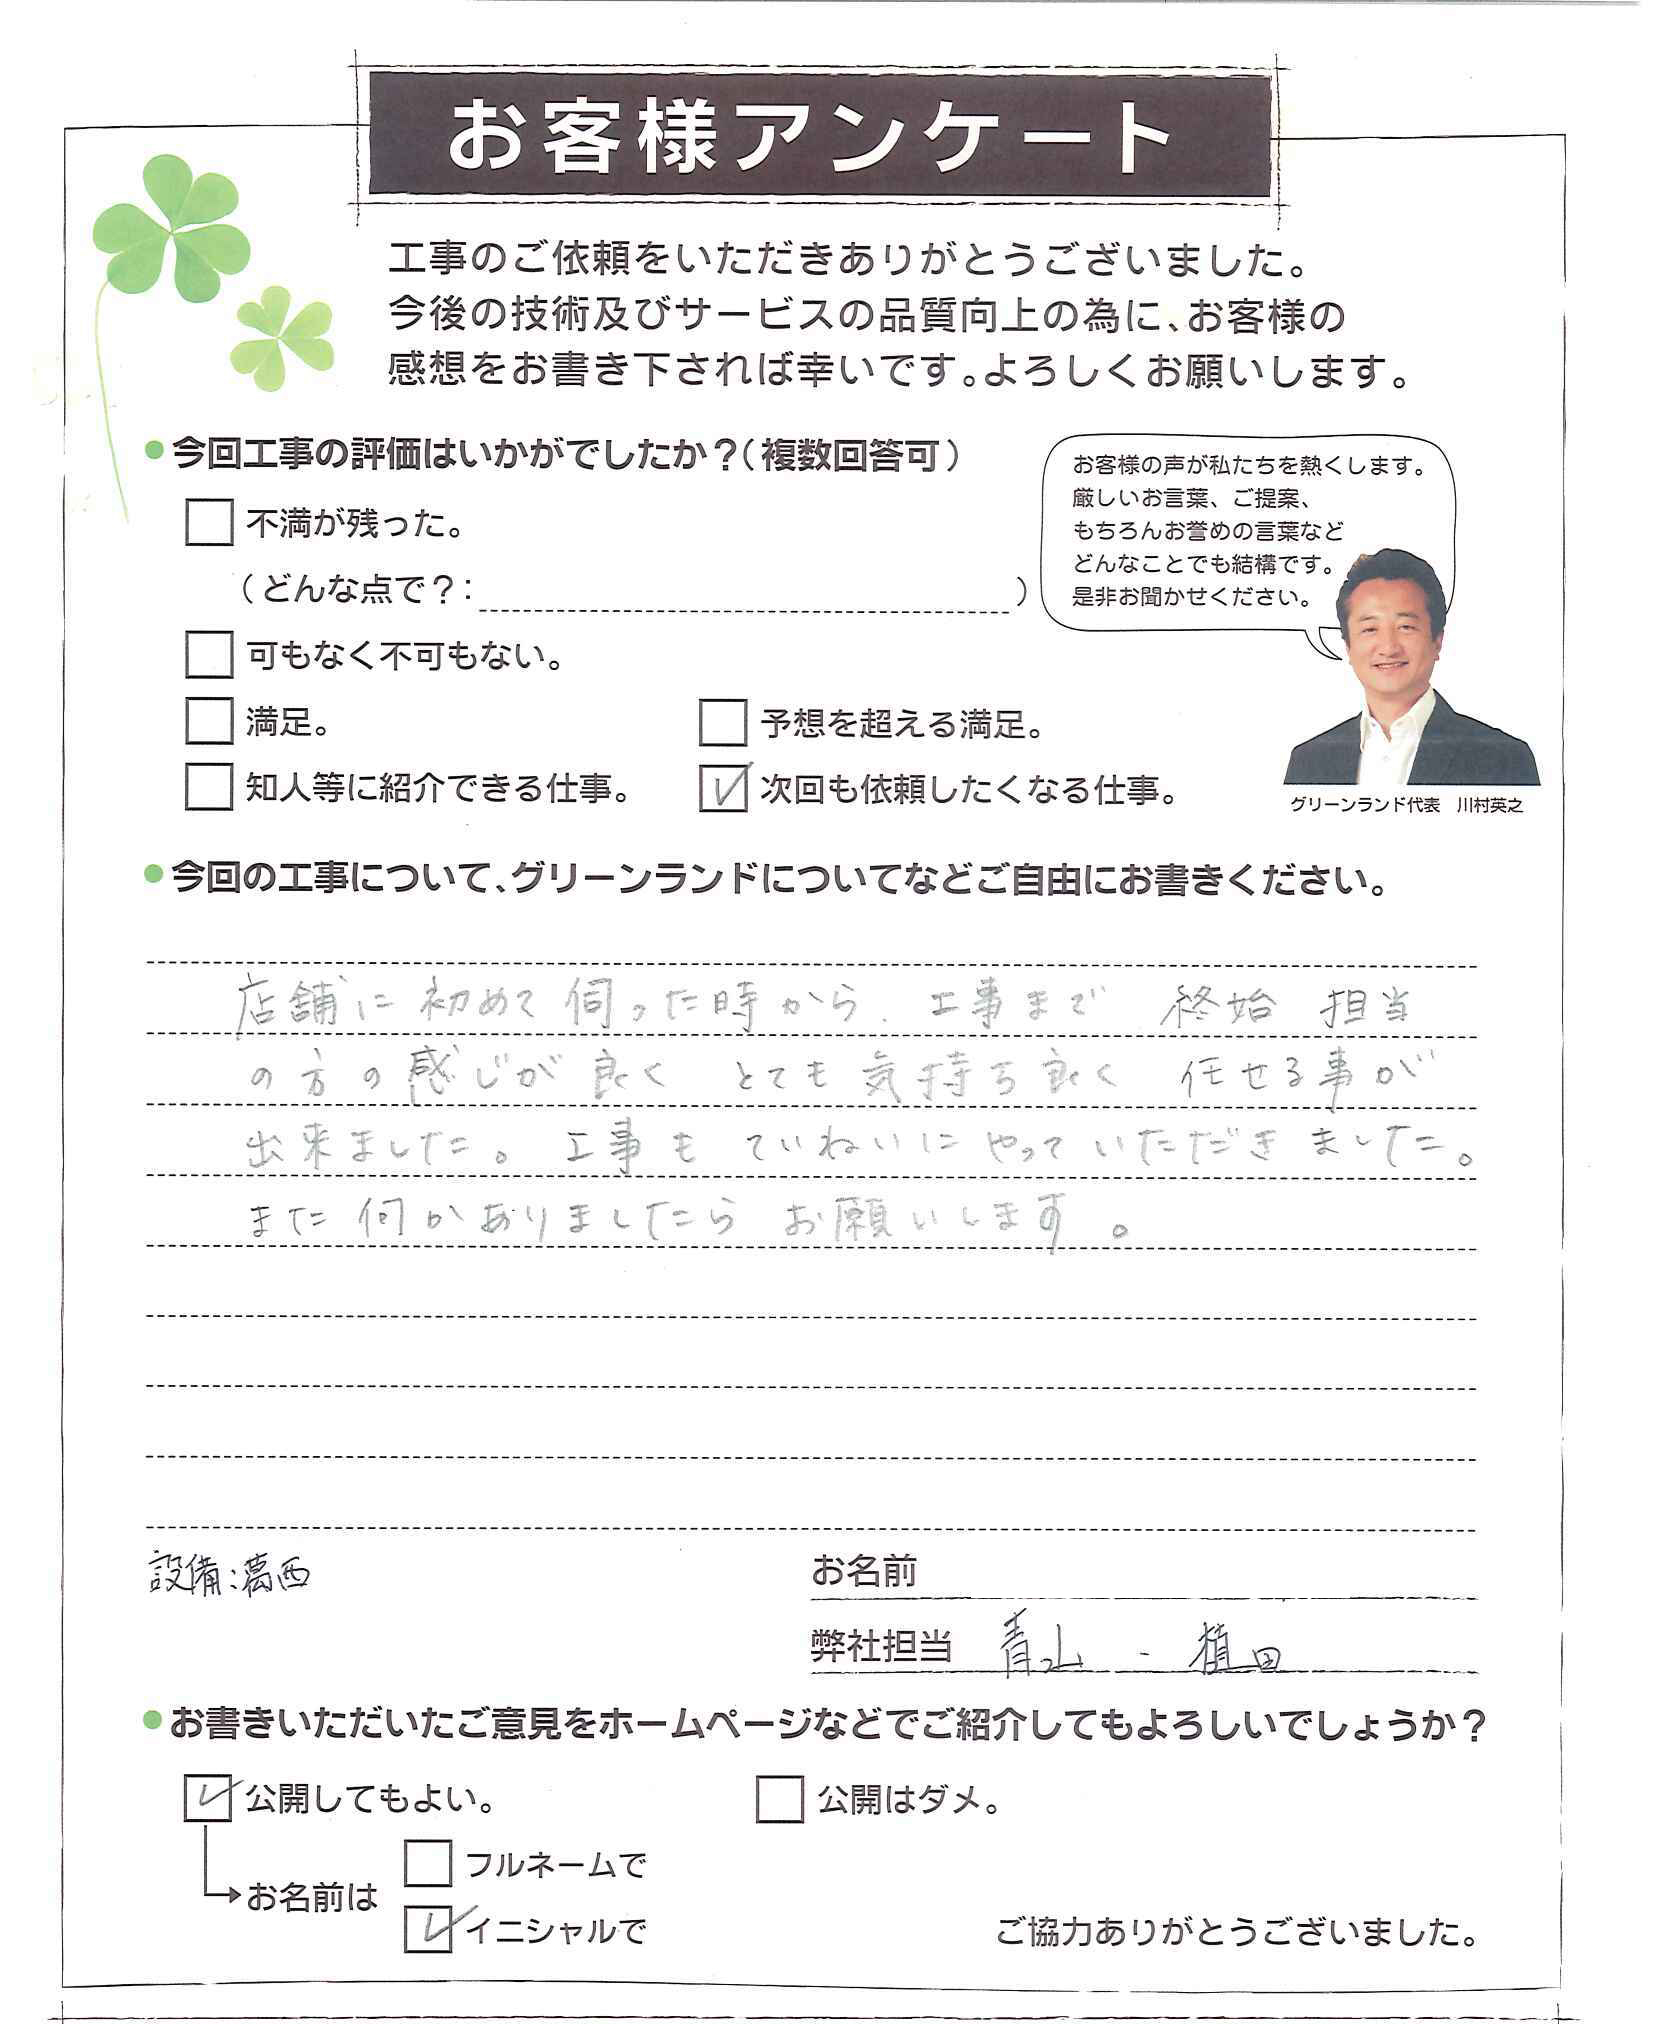 お客様アンケート
工事のご依頼をいただきありがとうございました。
今後の技術及びサービスの品質向上の為に、お客様の
感想をお書き下されば幸いです。よろしくお願いします。
●今回工事の評価はいかがでしたか？（複数回答可）
不満が残った。
（どんな点で？：　）
可もなく不可もない。
満足。
予想を超える満足。
知人等に紹介できる仕事。
次回も依頼したくなる仕事。
お客様の声が私たちを熱くします。
厳しいお言葉、ご提案、
もちろんお誉めの言葉など
どんなことでも結構です。
是非お聞かせください。
グリーンランド代表　川村英之
●今回の工事について、グリーンランドについてなどご自由にお書きください。
店舗に初めて伺った時から、工事まで 終始 担当
の方の感じが良く とても気持ち良く 任せる事が
出来ました。工事も ていねいにやっていただきました。
また何かありましたら お願いします。
設備：葛西
お名前
弊社担当 青山 ・ 植田
●お書きいただいたご意見をホームページなどでご紹介してもよろしいでしょうか？
公開してもよい。
公開はダメ。
お名前は
フルネームで
イニシャルで
ご協力ありがとうございました。